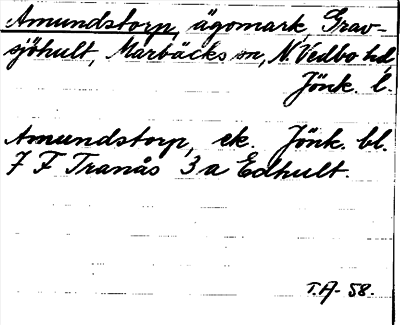 Amundstorp, ägomark, Grav-
sjöhult, Marbäcks sn, N. Vedbo hd,
Jönk. l.
Amundstorp, ek. Jönk. bl.
7 F Tranås 3 a Edhult.
T.A- 58.